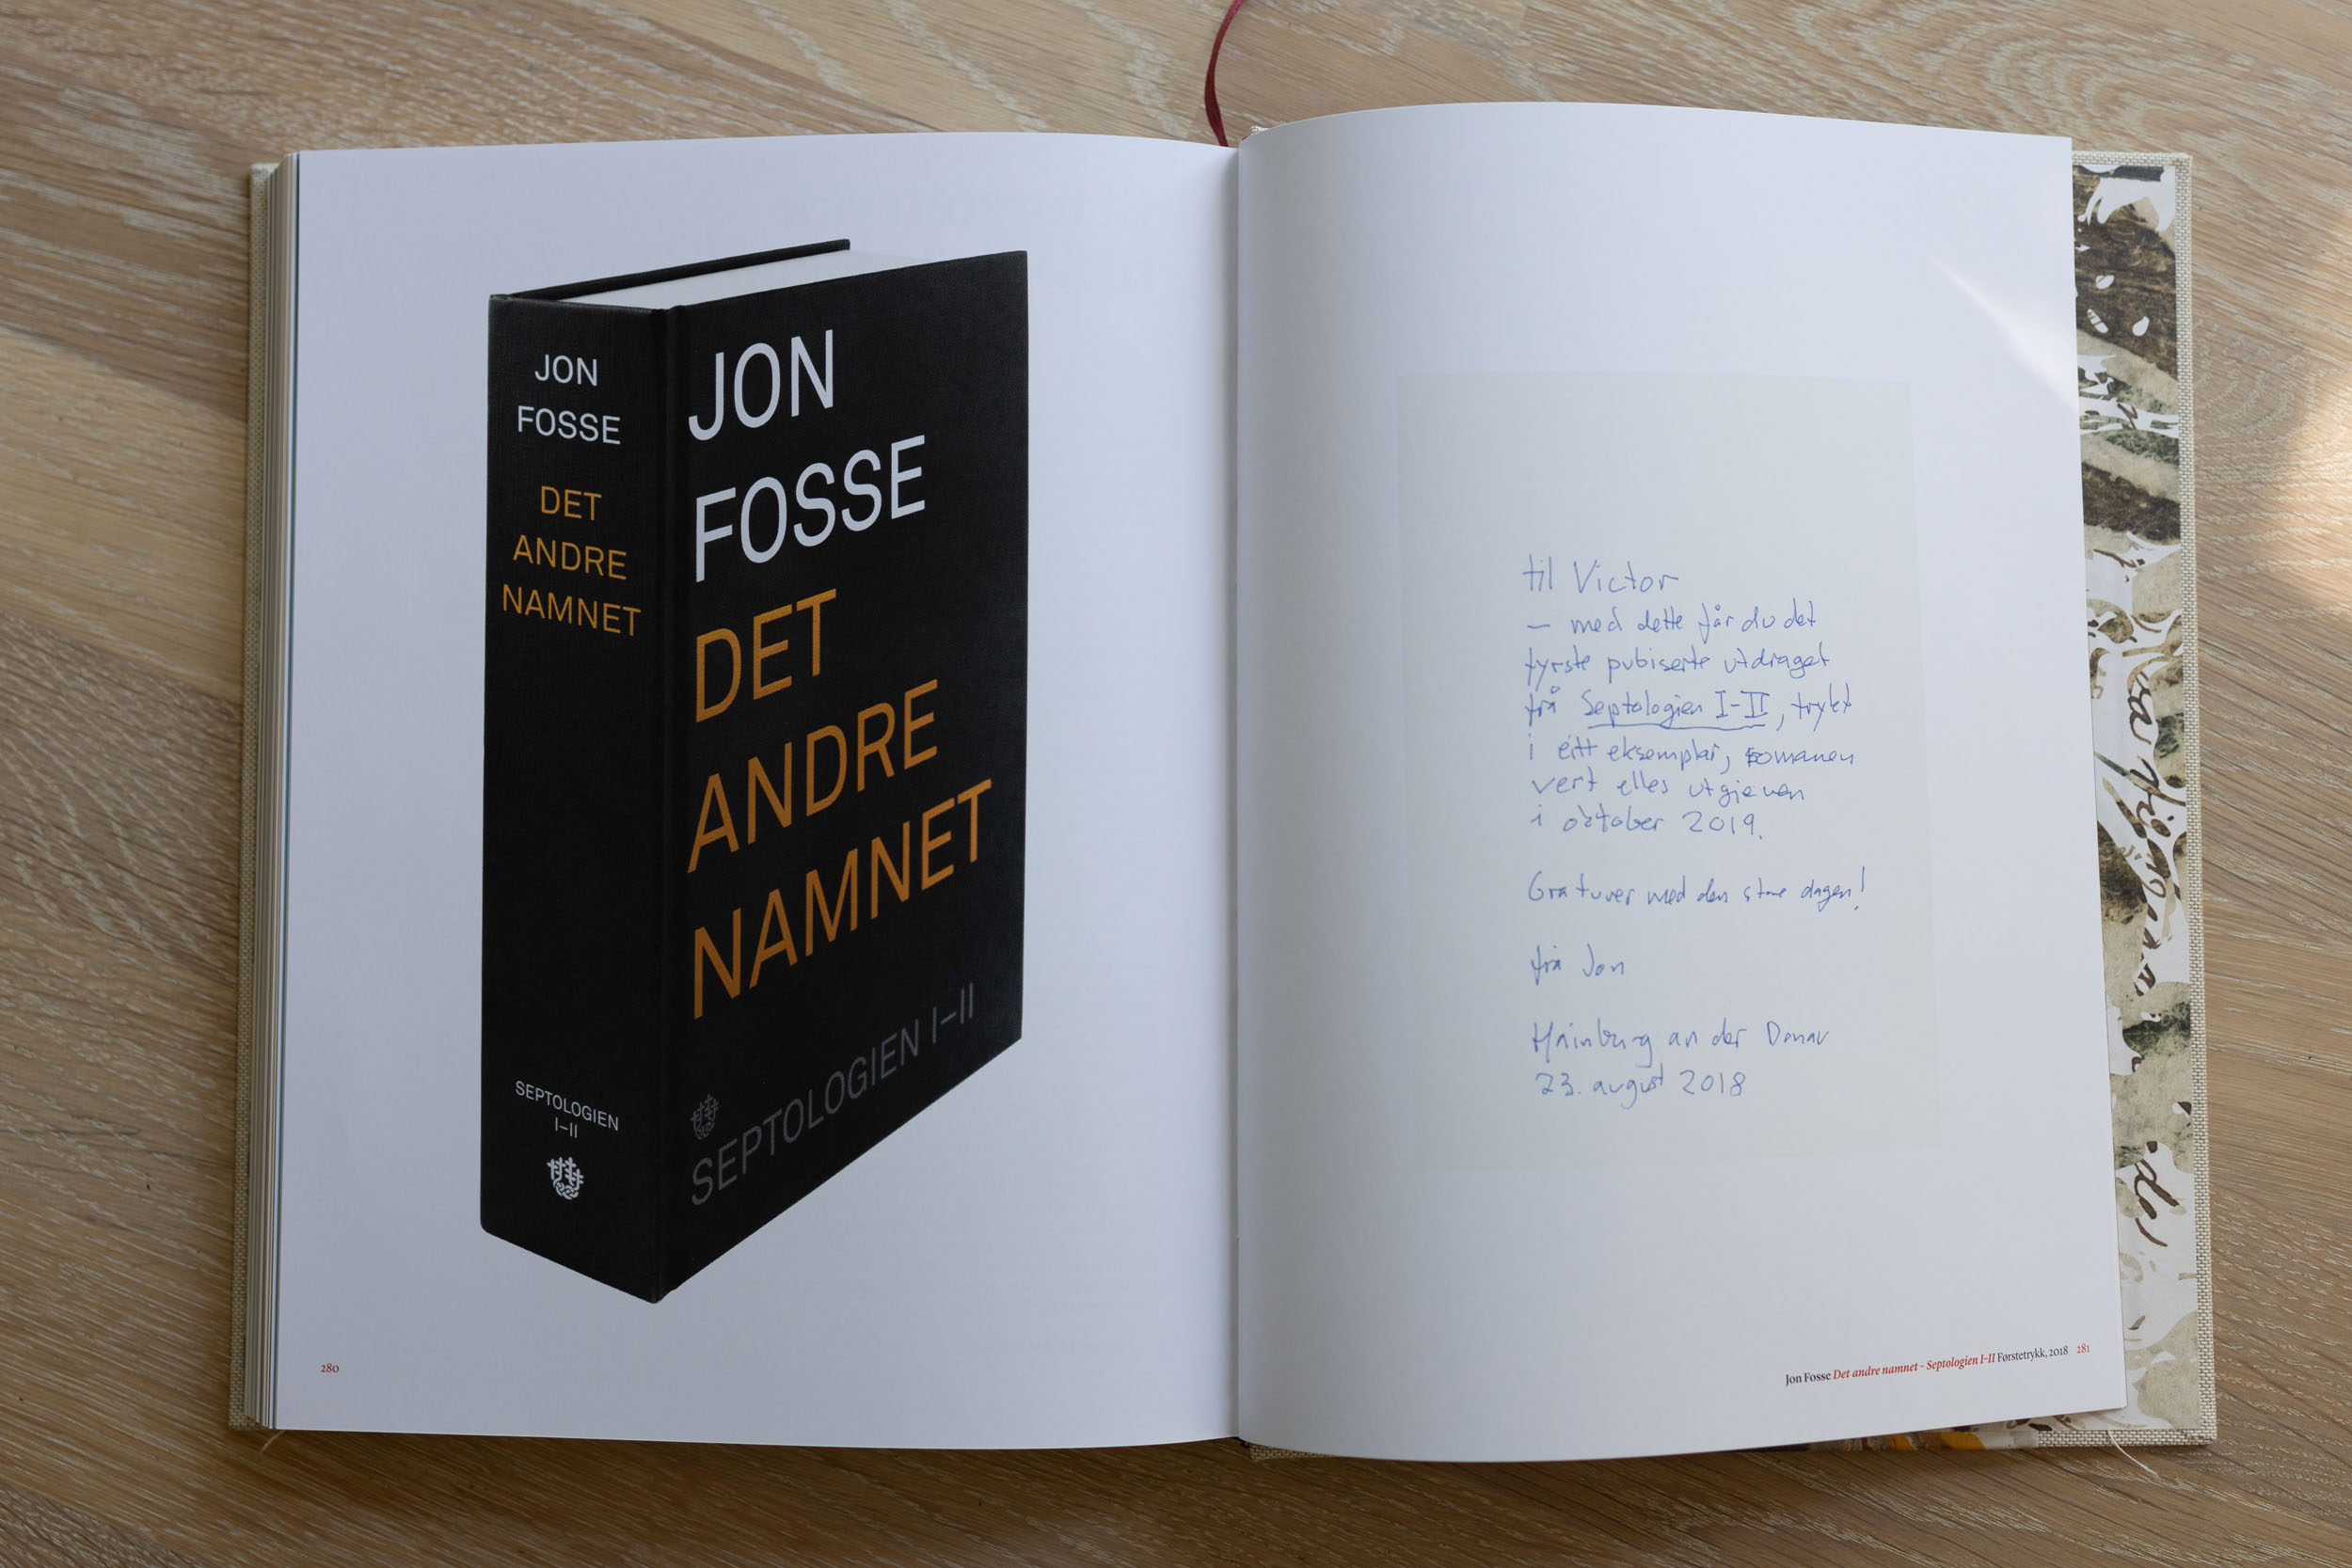 JON
FOSSE
DET
ANDRE
NAMNET
SEPTOLOGIEN
I–II
JON
FOSSE
DET
ANDRE
NAMNET
SEPTOLOGIEN I–II
280
til Victor
— med dette får du det
fyrste pubiserte utdraget
frå Septologien I-II, trykt
i eitt eksemplar, romanen
vert elles utgjeven
i oktober 2019.
Gratuver med den store dagen!
frå Jon
Hainburg an der Donau
23. august 2018
Jon Fosse Det andre namnet – Septologien I-II Førstetrykk, 2018 281